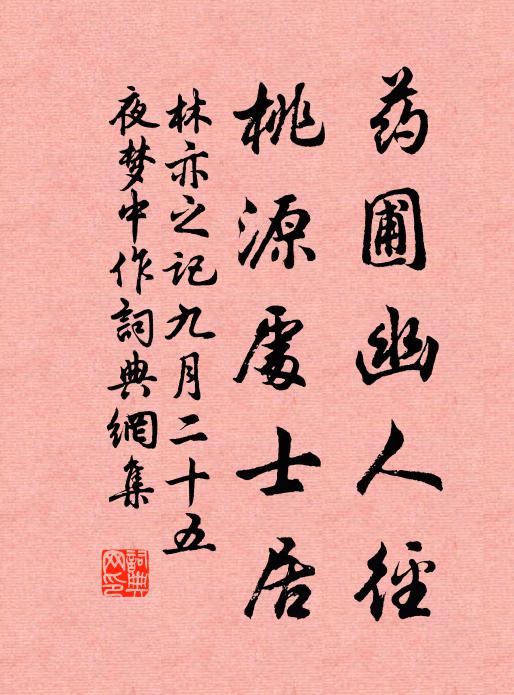 药圃幽人径
桃源處士居
林亦之记九月二十五
夜梦中作詞典網集
詞典網印